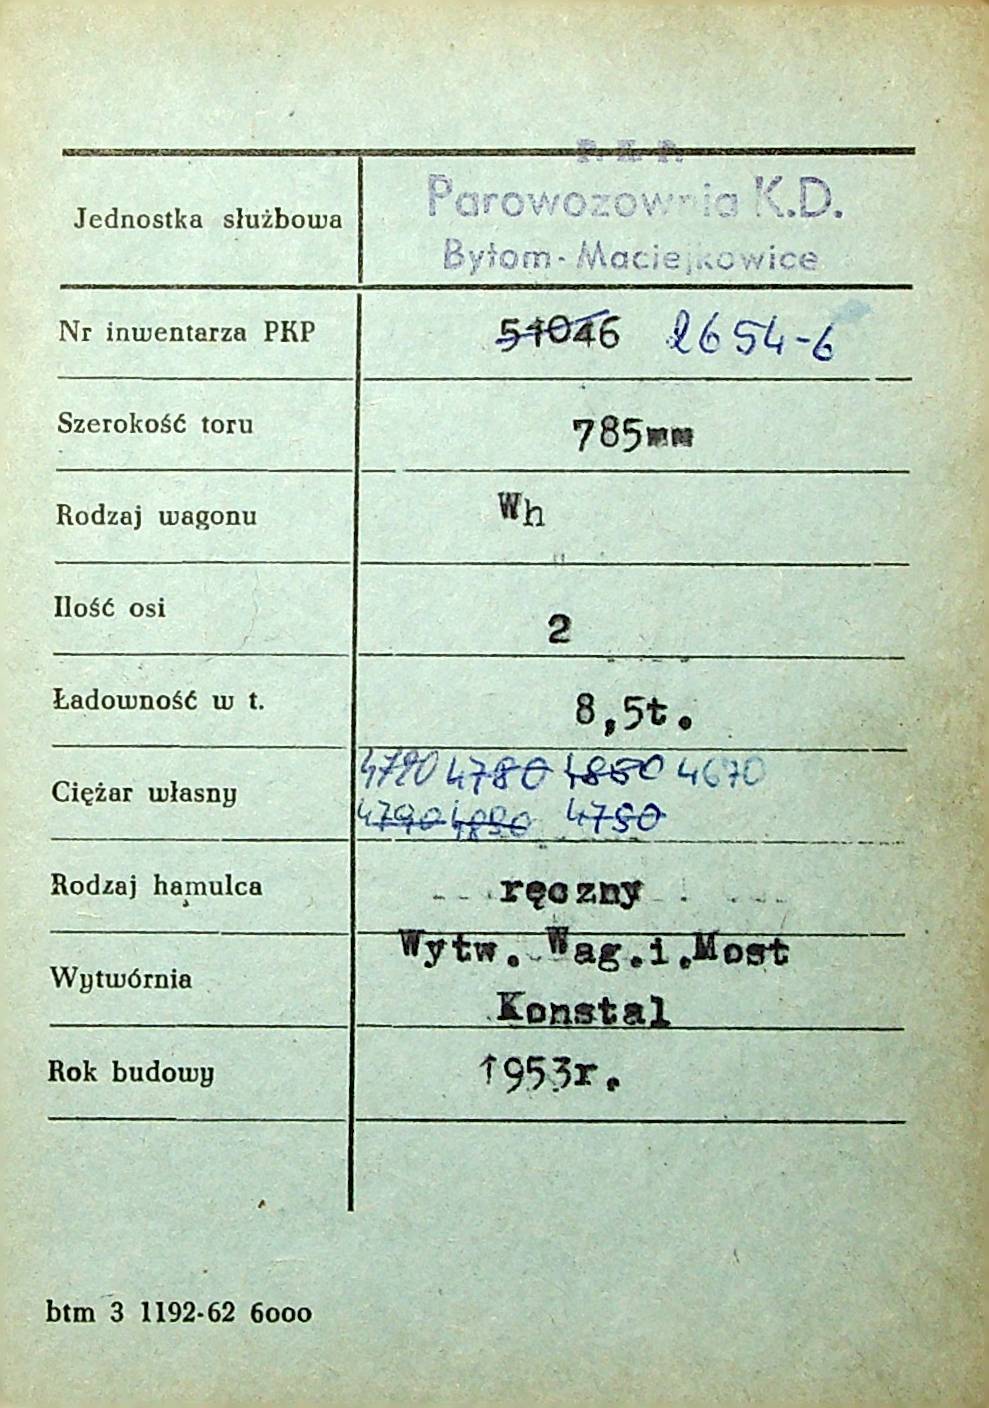 P. K. P.
Jednostka służbowa Parowozownia K.D.
Bytom-Maciejkowice
Nr inwentarza PKP 51046 2654-6
Szerokość toru 785mm
Rodzaj wagonu Wh
Ilość osi 2
Ładowność w t. 8,5t.
4720 4780 4850 4670
Ciężar własny
4790 4890 4750
Rodzaj hamulca ręczny
Wytw. Wag.i.Most
Wytwórnia
Konstal
Rok budowy 1953r.
btm 3 1192-62 6000